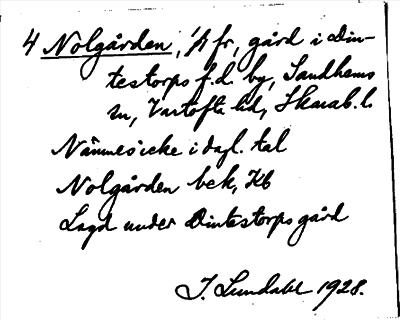 4 Nolgården, 1/1 fr, gård i Din-
testorps f.d. by, Sandhems
sn, Vartofta hd, Skarab. l.
Nämnes icke i dagl. tal
Nolgården bek, Kb
Lagd under Dintestorps gård
I. Lundahl 1928.